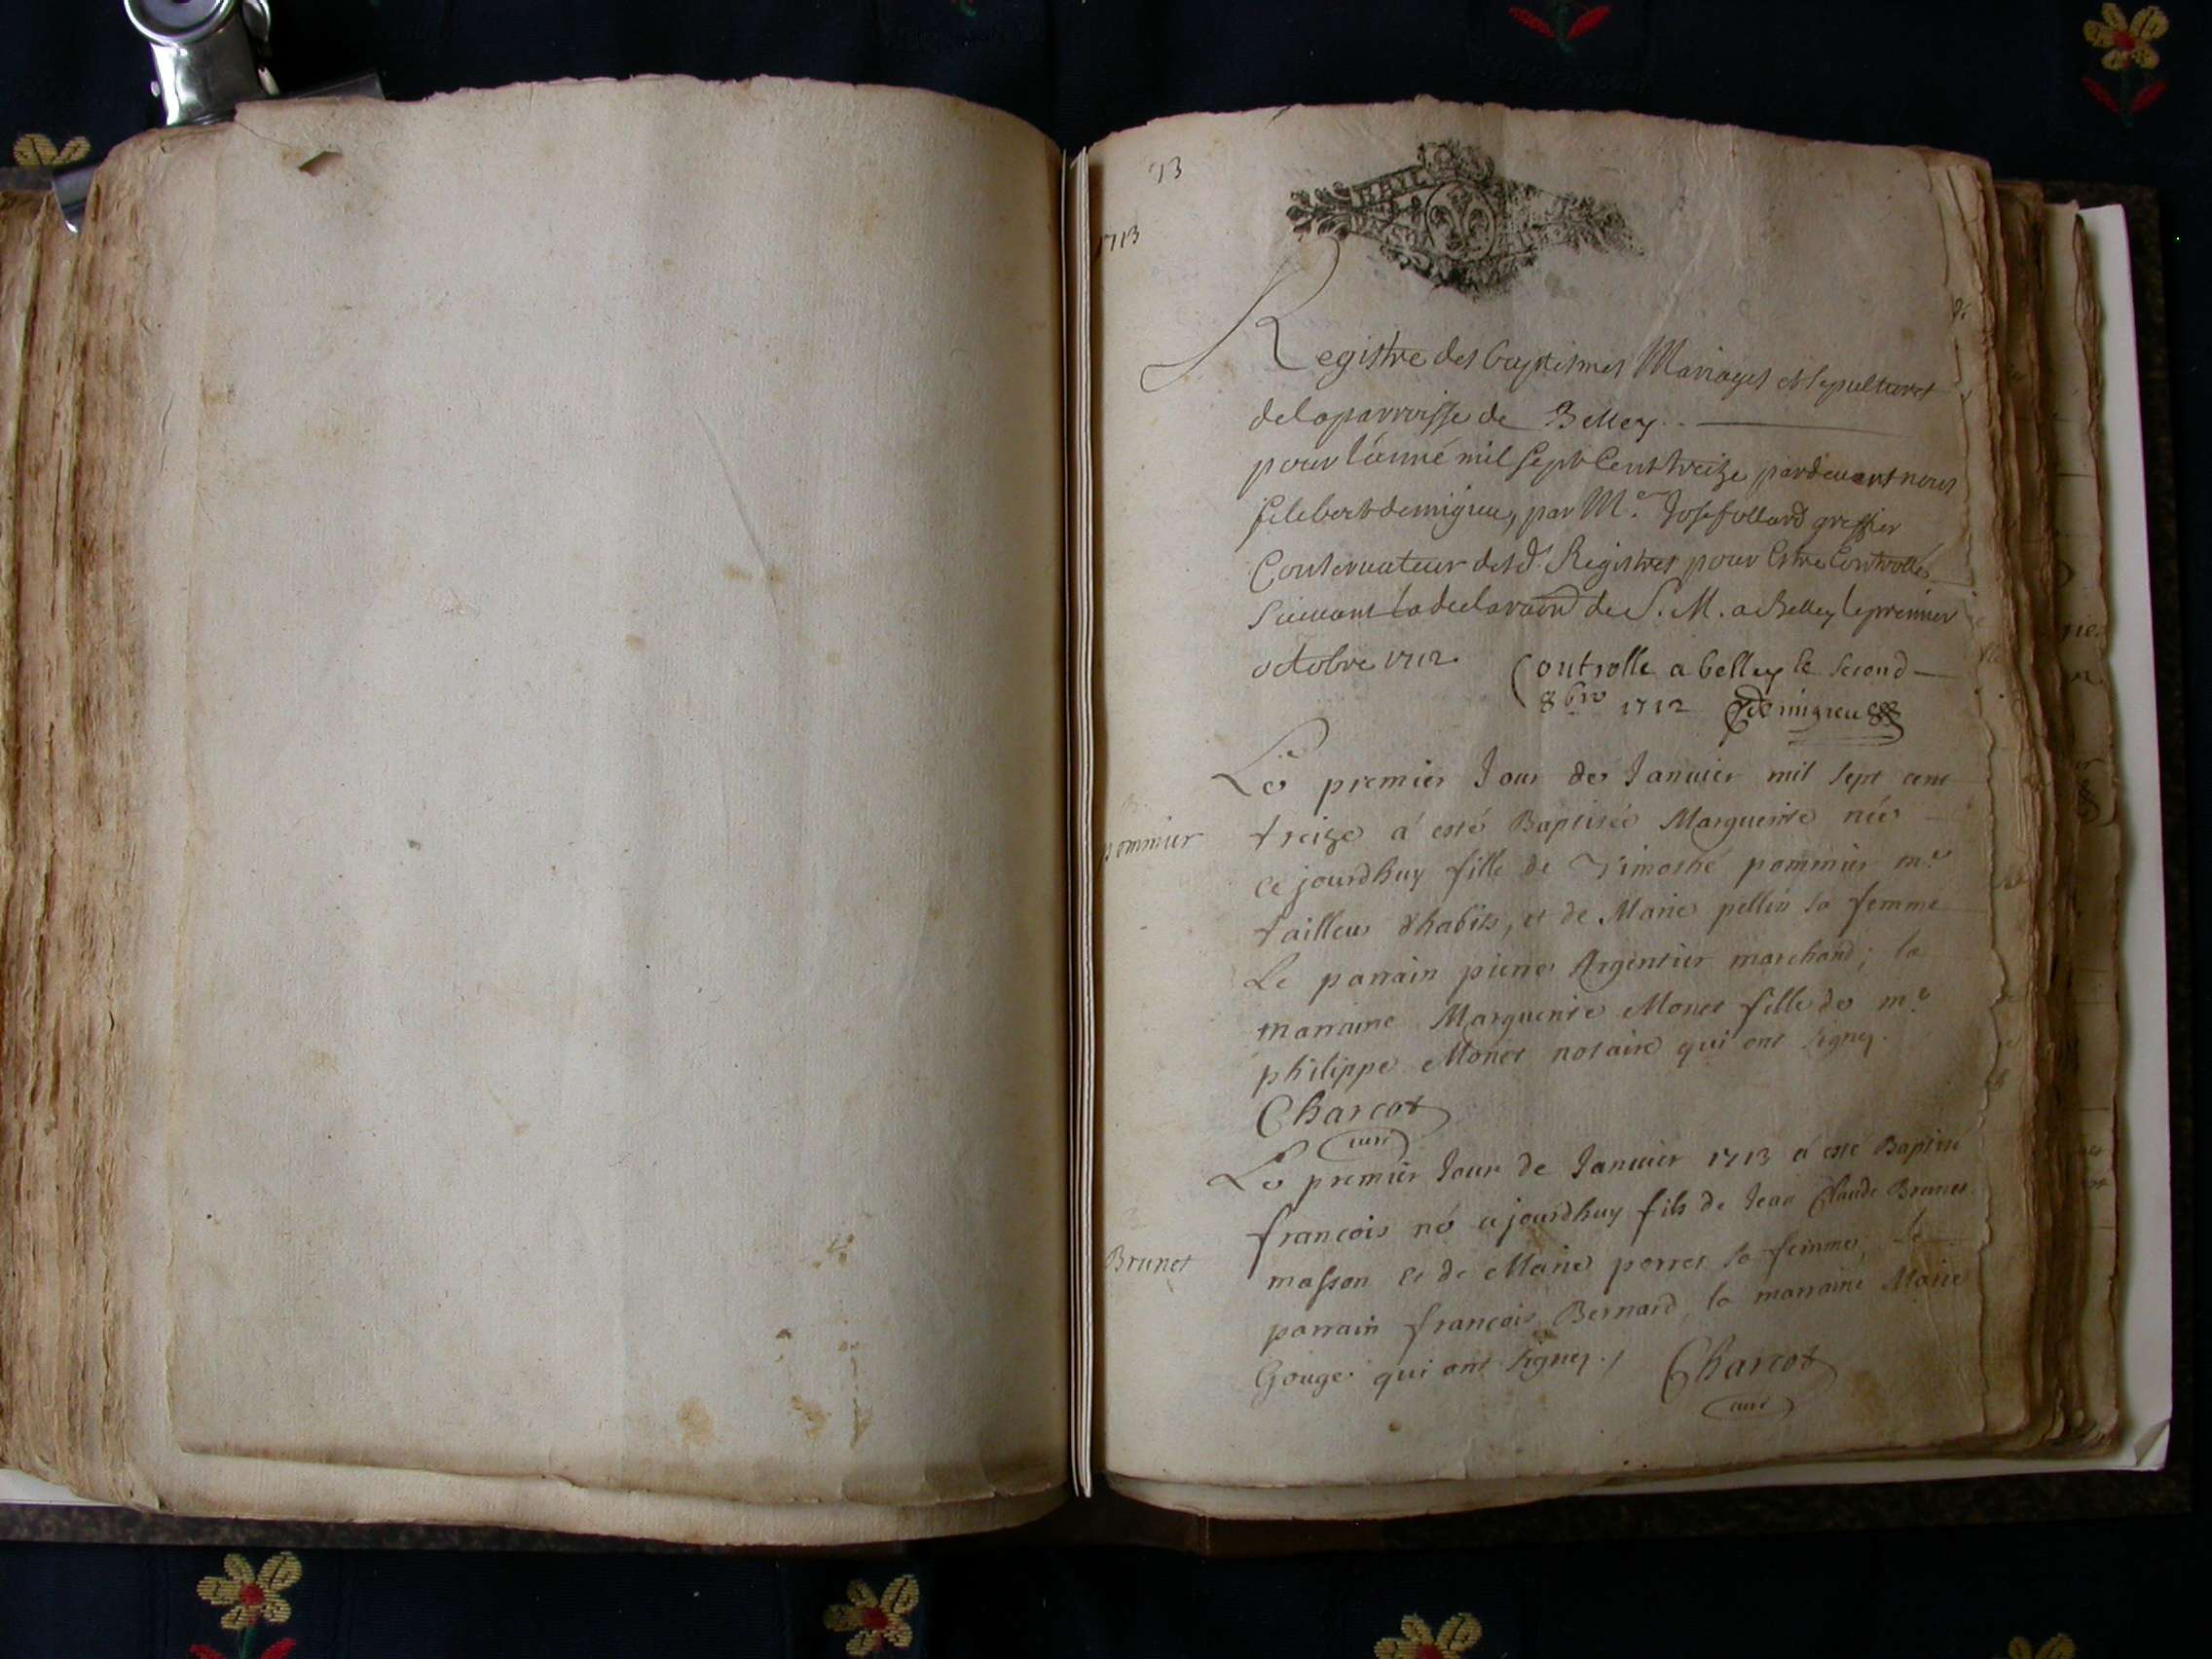 73
1713
Registre des baptismes Mariages et sepultures
de la parroisse de Belley
pour l'année mil sept cent treize pardevant nous
filebert demigieu, par Me. Josef ollard greffier
Conservateur desd. Registres pour Estre Controllés
suivant la declaraon de S. M. a Belley le premier
octobre 1712.
Controlle a belley le second
8bre 1712 demigieu
Le premier Jour de Januier mil sept cent
pommier
treize a esté Baptisée Marguerite née
ce jourdhuy fille de Timothé pommier me
tailleur dhabits, et de Marie pellin sa femme
Le parrain pierre Argentier marchand; la
marraine Marguerite Monet fille de me
philippe Monet notaire qui ont signy.
Charcot
curé
Le premier Jour de Januier 1713 a esté Baptisé
francois né cejourdhuy fils de Jean Claude Brunet
Brunet
masson et de Marie perret sa femme, le
parrain francois Bernard, la marraine Marie
Gouge qui ont signey. Charcot
curé